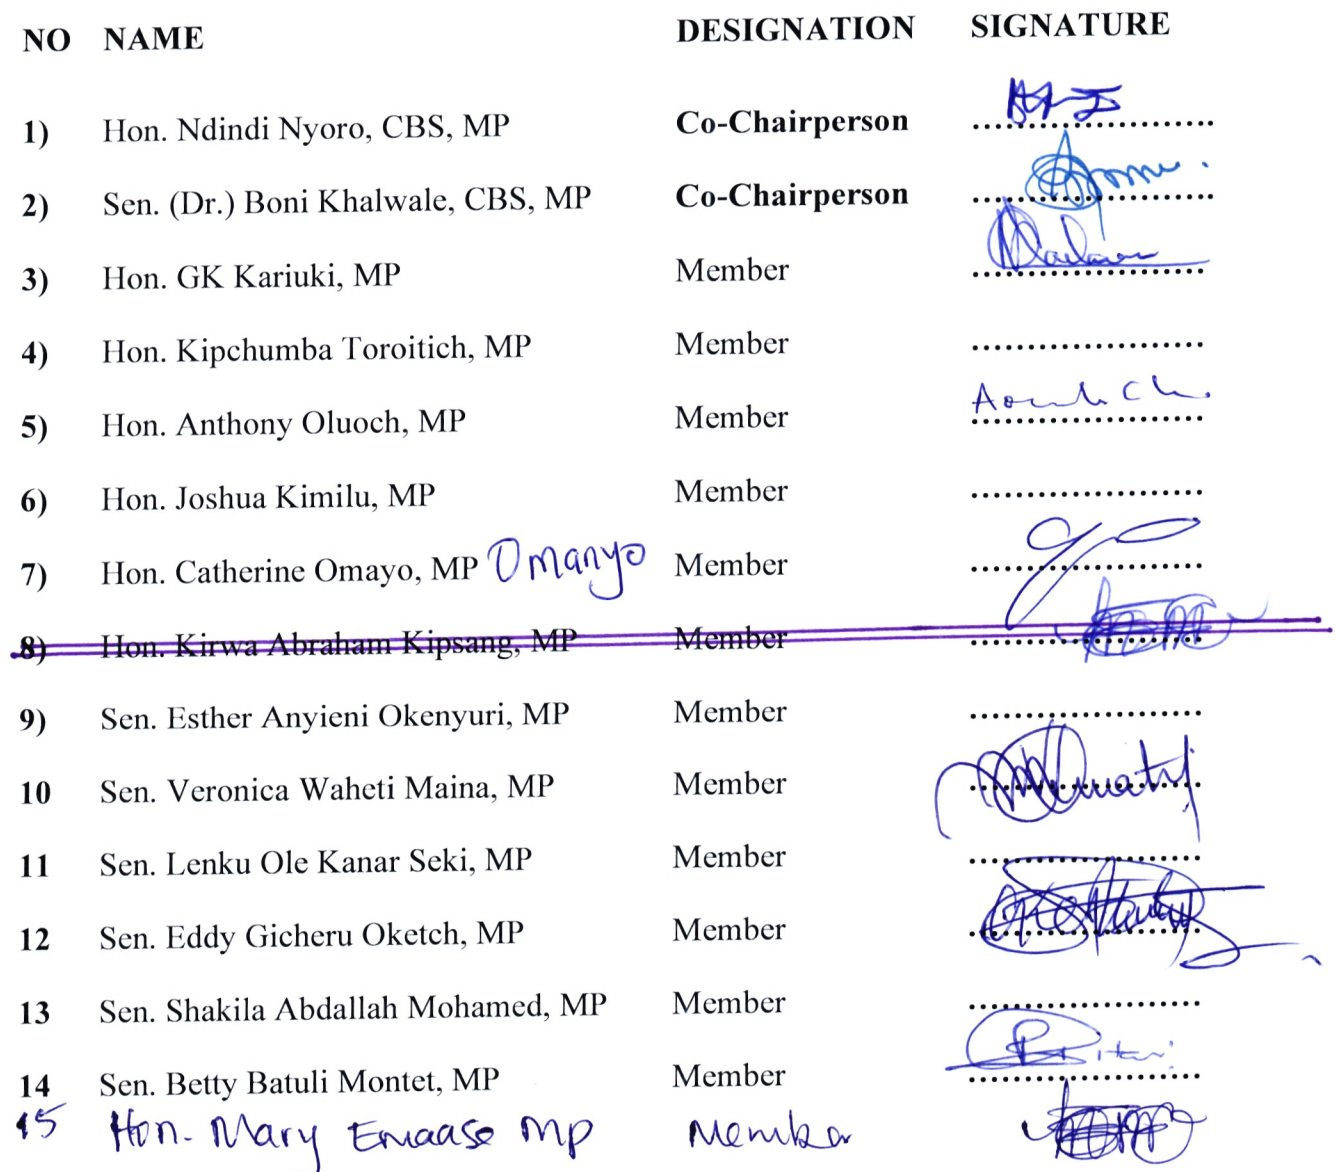 NO NAME DESIGNATION SIGNATURE
1) Hon. Ndindi Nyoro, CBS, MP Co-Chairperson ......................
2) Sen. (Dr.) Boni Khalwale, CBS, MP Co-Chairperson ......................
3) Hon. GK Kariuki, MP Member .....................
4) Hon. Kipchumba Toroitich, MP Member .....................
5) Hon. Anthony Oluoch, MP Member .....................
6) Hon. Joshua Kimilu, MP Member .....................
7) Hon. Catherine Omayo, MP Omanyo Member .....................
8) Hon. Kirwa Abraham Kipsang, MP Member .....................
9) Sen. Esther Anyieni Okenyuri, MP Member .....................
10 Sen. Veronica Waheti Maina, MP Member .....................
11 Sen. Lenku Ole Kanar Seki, MP Member .....................
12 Sen. Eddy Gicheru Oketch, MP Member .....................
13 Sen. Shakila Abdallah Mohamed, MP Member .....................
14 Sen. Betty Batuli Montet, MP Member .....................
15 Hon. Mary Emaase MP Member